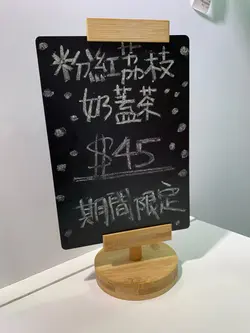 粉紅荔枝
奶蓋茶
$45
期間限定